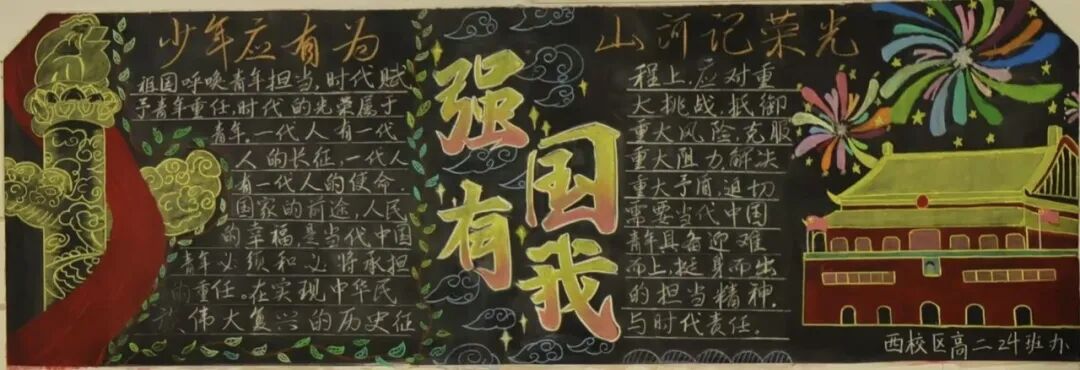 少年应有为
祖国呼唤青年担当,时代赋
予青年重任,时代的光荣属于
青年。一代人有一代
人的长征,一代人
有一代人的使命.
国家的前途,人民
的幸福,是当代中国
青年必须和必将承担
的重任。在实现中华民
族伟大复兴的历史征
强国
有我
山河记荣光
程上,应对重
大挑战,抵御
重大风险,克服
重大阻力,解决
重大矛盾,迫切
需要当代中国
青年具备迎难
而上,挺身而出
的担当精神.
与时代责任.
西校区高二24班办